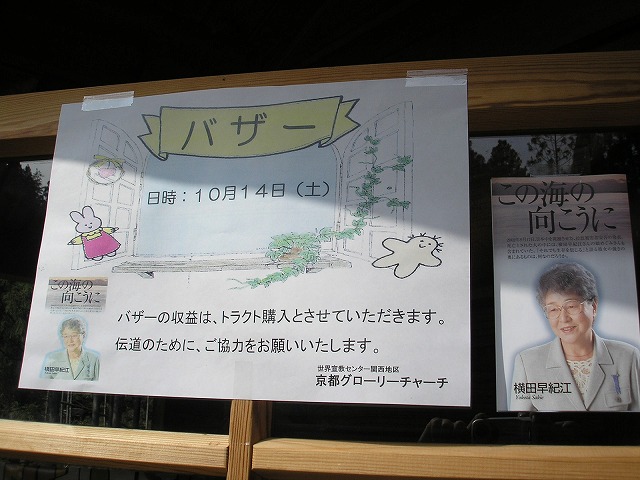 バザー
日時：１０月１４日（土）
この海の
向こうに
横田早紀江
バザーの収益は、トラクト購入とさせていただきます。
伝道のために、ご協力をお願いいたします。
世界宣教センター関西地区
京都グローリーチャーチ
この海の
向こうに
横田早紀江
Yokota Sakie